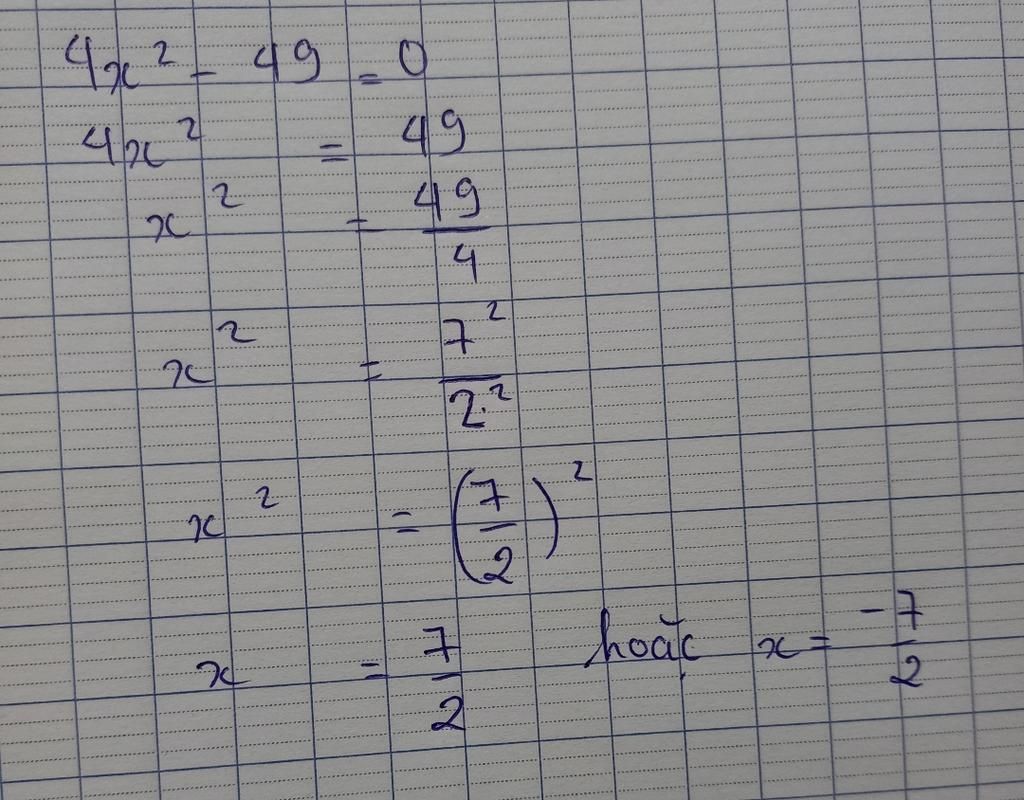 4x² - 49 = 0
4x² = 49
x² = 49/4
x² = 7²/2²
x² = (7/2)²
x = 7/2 hoặc x = -7/2